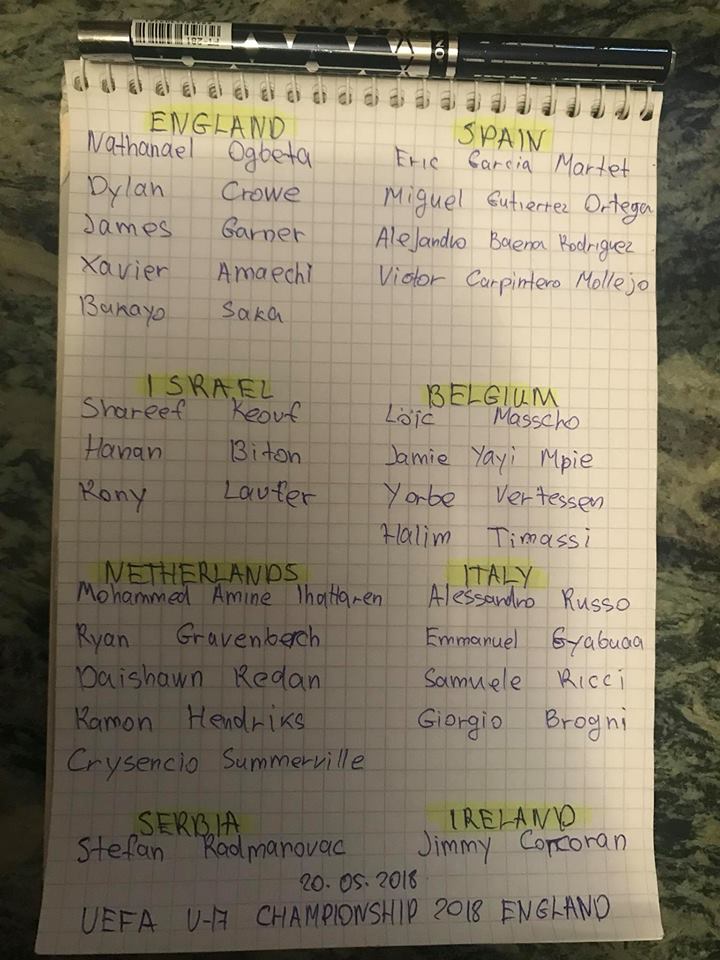 ENGLAND
Nathanael Ogbeta
Dylan Crowe
James Garner
Xavier Amaechi
Bukayo Saka
SPAIN
Eric Garcia Martet
Miguel Gutierrez Ortega
Alejandro Baena Rodriguez
Victor Carpintero Mollejo
ISRAEL
Shareef Keouf
Hanan Biton
Rony Laufer
BELGIUM
Loïc Masscho
Jamie Yayi Mpie
Yorbe Vertessen
Halim Timassi
NETHERLANDS
Mohammed Amine Ihattaren
Ryan Gravenberch
Daishawn Redan
Ramon Hendriks
Crysencio Summerville
ITALY
Alessandro Russo
Emmanuel Gyabuaa
Samuele Ricci
Giorgio Brogni
SERBIA
Stefan Radmanovac
IRELAND
Jimmy Corcoran
20.05.2018
UEFA U-17 CHAMPIONSHIP 2018 ENGLAND